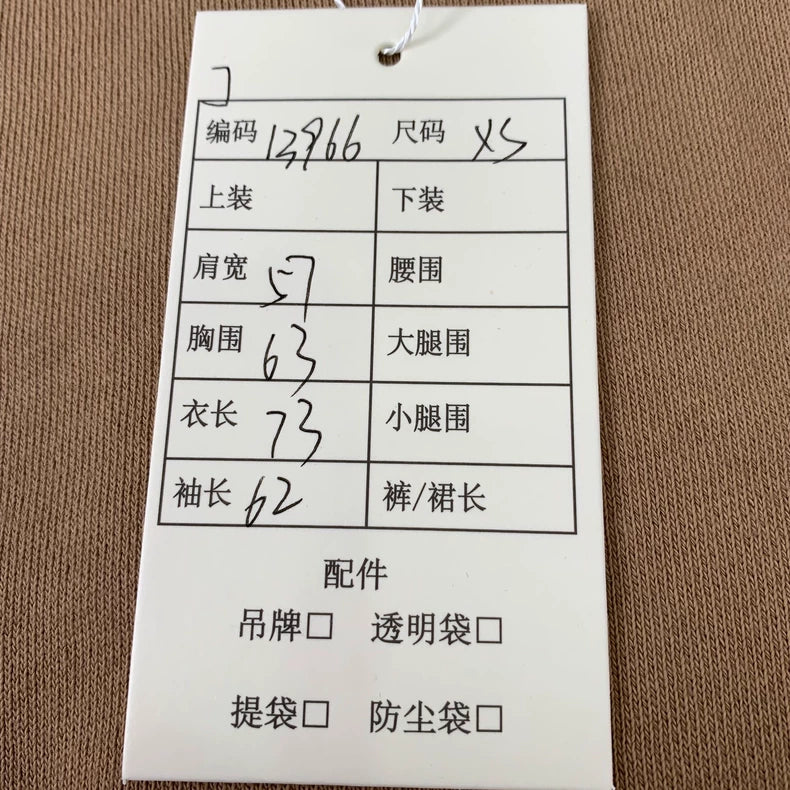 编码 13966 尺码 XS
上装 下装
肩宽 57 腰围
胸围 63 大腿围
衣长 73 小腿围
袖长 62 裤/裙长
配件
吊牌□ 透明袋□
提袋□ 防尘袋□